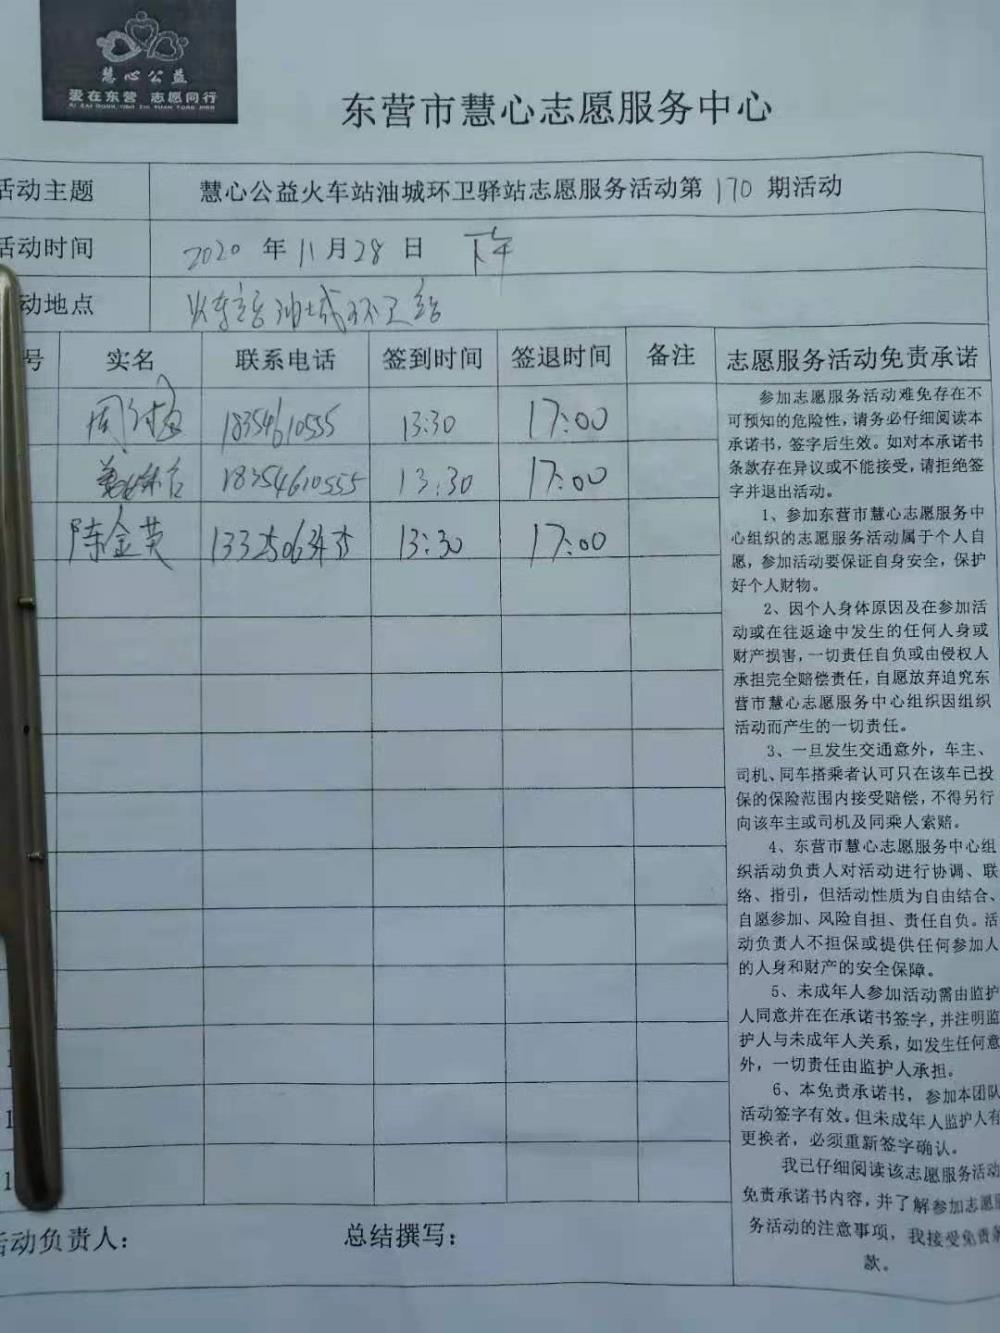 慧心公益
爱在东营 志愿同行
AI ZAI DONG YING ZHI YUAN TONG XING
东营市慧心志愿服务中心
活动主题 慧心公益火车站油城环卫驿站志愿服务活动第170期活动
活动时间 2020年11月28日 下午
动地点 火车站油城环卫站
号 实名 联系电话 签到时间 签退时间 备注 志愿服务活动免责承诺
周 18354610555 13:30 17:00
18354610555 13:30 17:00
陈金英 13:30 17:00
参加志愿服务活动难免存在不
可预知的危险性,请务必仔细阅读本
承诺书,签字后生效。如对本承诺书
条款存在异议或不能接受,请拒绝签
字并退出活动。
1、参加东营市慧心志愿服务中
心组织的志愿服务活动属于个人自
愿,参加活动要保证自身安全,保护
好个人财物。
2、因个人身体原因及在参加活
动或在往返途中发生的任何人身或
财产损害,一切责任自负或由侵权人
承担完全赔偿责任,自愿放弃追究东
营市慧心志愿服务中心组织因组织
活动而产生的一切责任。
3、一旦发生交通意外,车主、
司机、同车搭乘者认可只在该车已投
保的保险范围内接受赔偿,不得另行
向该车主或司机及同乘人索赔。
4、东营市慧心志愿服务中心组
织活动负责人对活动进行协调、联
络、指引,但活动性质为自由结合、
自愿参加、风险自担、责任自负。活
动负责人不担保或提供任何参加人
的人身和财产的安全保障。
5、未成年人参加活动需由监护
人同意并在在承诺书签字,并注明监
护人与未成年人关系,如发生任何意
外,一切责任由监护人承担。
6、本免责承诺书,参加本团队
活动签字有效。但未成年人监护人有
更换者,必须重新签字确认。
我已仔细阅读该志愿服务活动
免责承诺书内容,并了解参加志愿服
务活动的注意事项,我接受免责条
款。
活动负责人: 总结撰写: